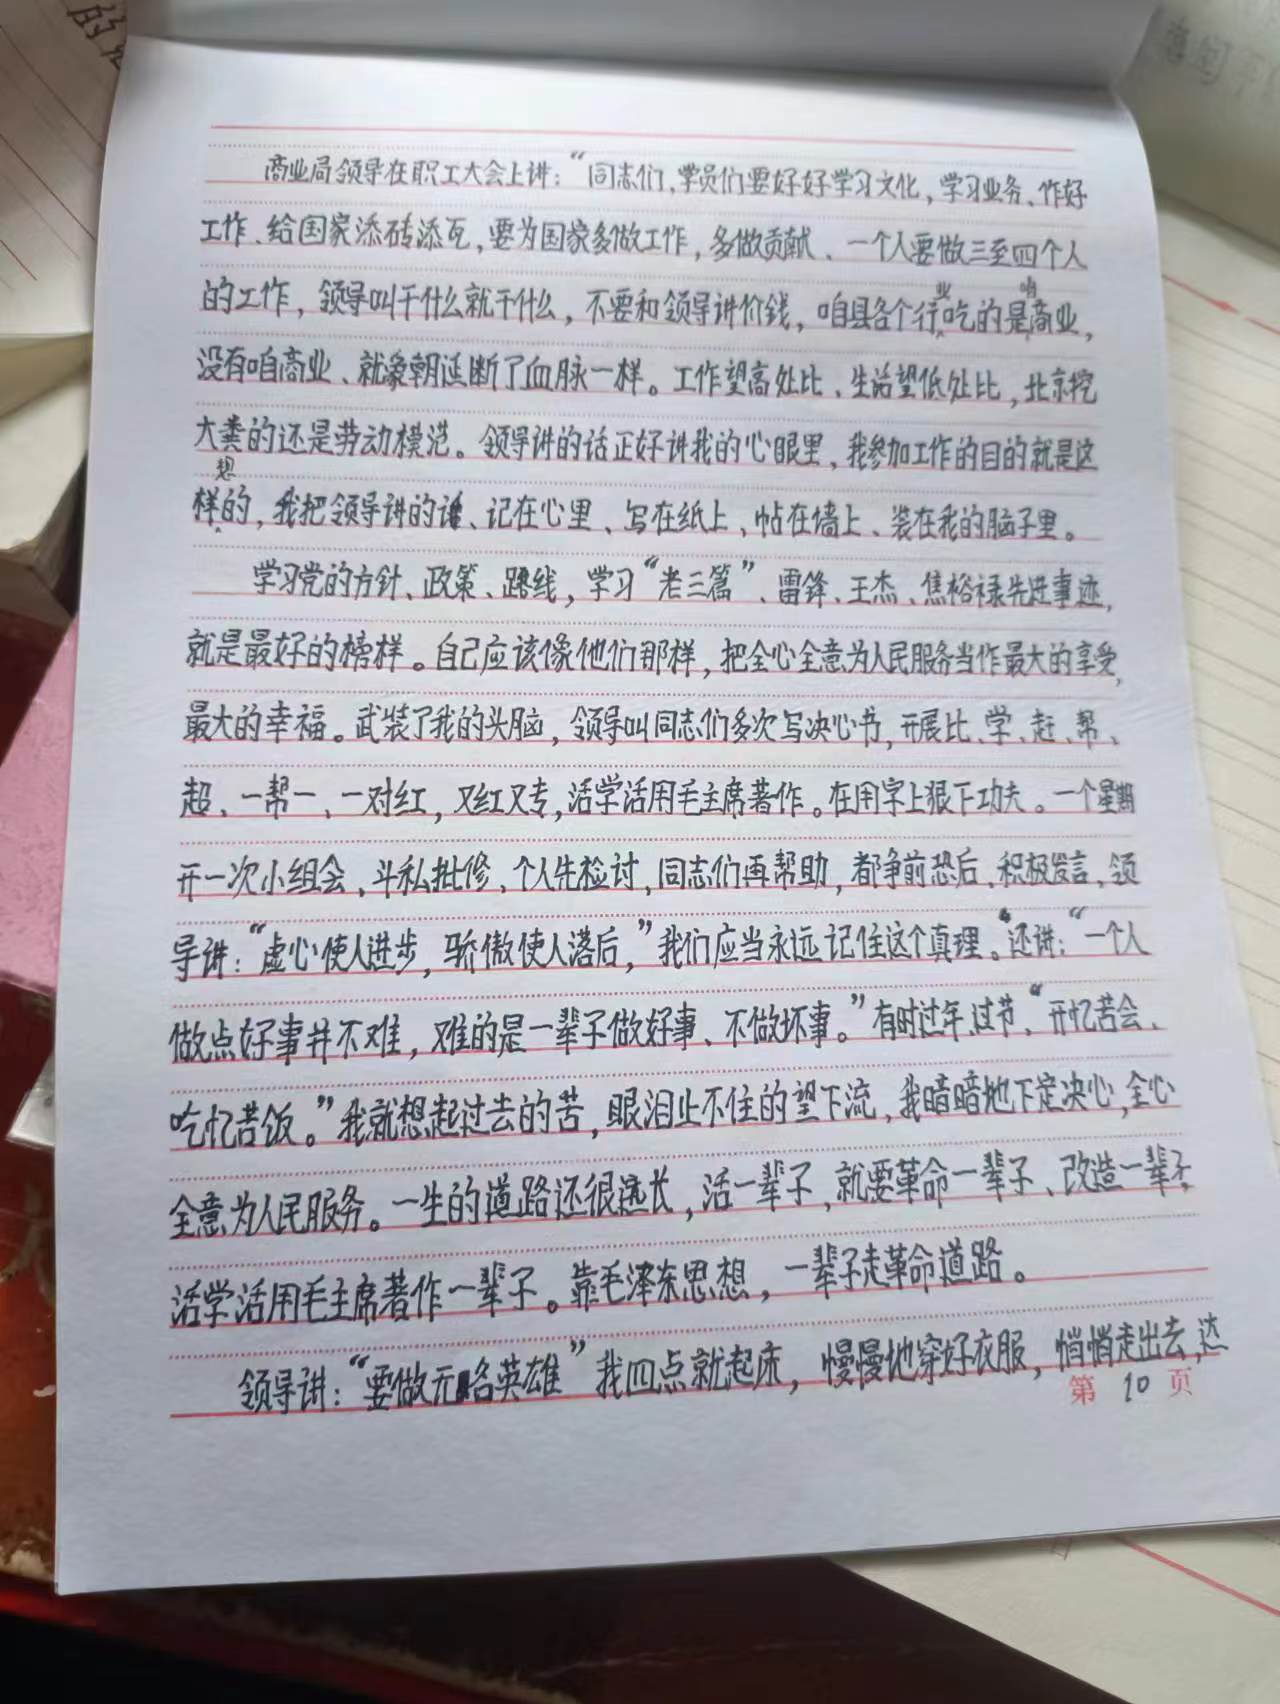 商业局领导在职工大会上讲：“同志们，学员们要好好学习文化，学习业务、作好
工作、给国家添砖添瓦，要为国家多做工作，多做贡献、一个人要做三至四个人
的工作，领导叫干什么就干什么，不要和领导讲价钱，咱县各个行业吃的是咱商业，
没有咱商业、就象朝廷断了血脉一样。工作望高处比、生活望低处比，北京挖
大粪的还是劳动模范。领导讲的话正好讲我的心眼里，我参加工作的目的就是这
样想的，我把领导讲的话、记在心里、写在纸上、帖在墙上、装在我的脑子里。
学习党的方针、政策、路线，学习“老三篇”、雷锋、王杰、焦裕禄先进事迹，
就是最好的榜样。自己应该像他们那样，把全心全意为人民服务当作最大的享受，
最大的幸福。武装了我的头脑，领导叫同志们多次写决心书，开展比、学、赶、帮、
超、一帮一、一对红，又红又专，活学活用毛主席著作。在用字上狠下功夫。一个星期
开一次小组会、斗私批修、个人先检讨，同志们再帮助，都争前恐后、积极发言，领
导讲：“虚心使人进步，骄傲使人落后，”我们应当永远记住这个真理。“还讲：“一个人
做点好事并不难，难的是一辈子做好事、不做坏事。”有时过年、过节，“开忆苦会、
吃忆苦饭。”我就想起过去的苦，眼泪止不住的望下流，我暗暗地下定决心，全心
全意为人民服务。一生的道路还很远长，活一辈子，就要革命一辈子、改造一辈子，
活学活用毛主席著作一辈子。靠毛泽东思想，一辈子走革命道路。
领导讲：“要做无名英雄”我四点就起床，慢慢地穿好衣服，悄悄走出去，达
第10页